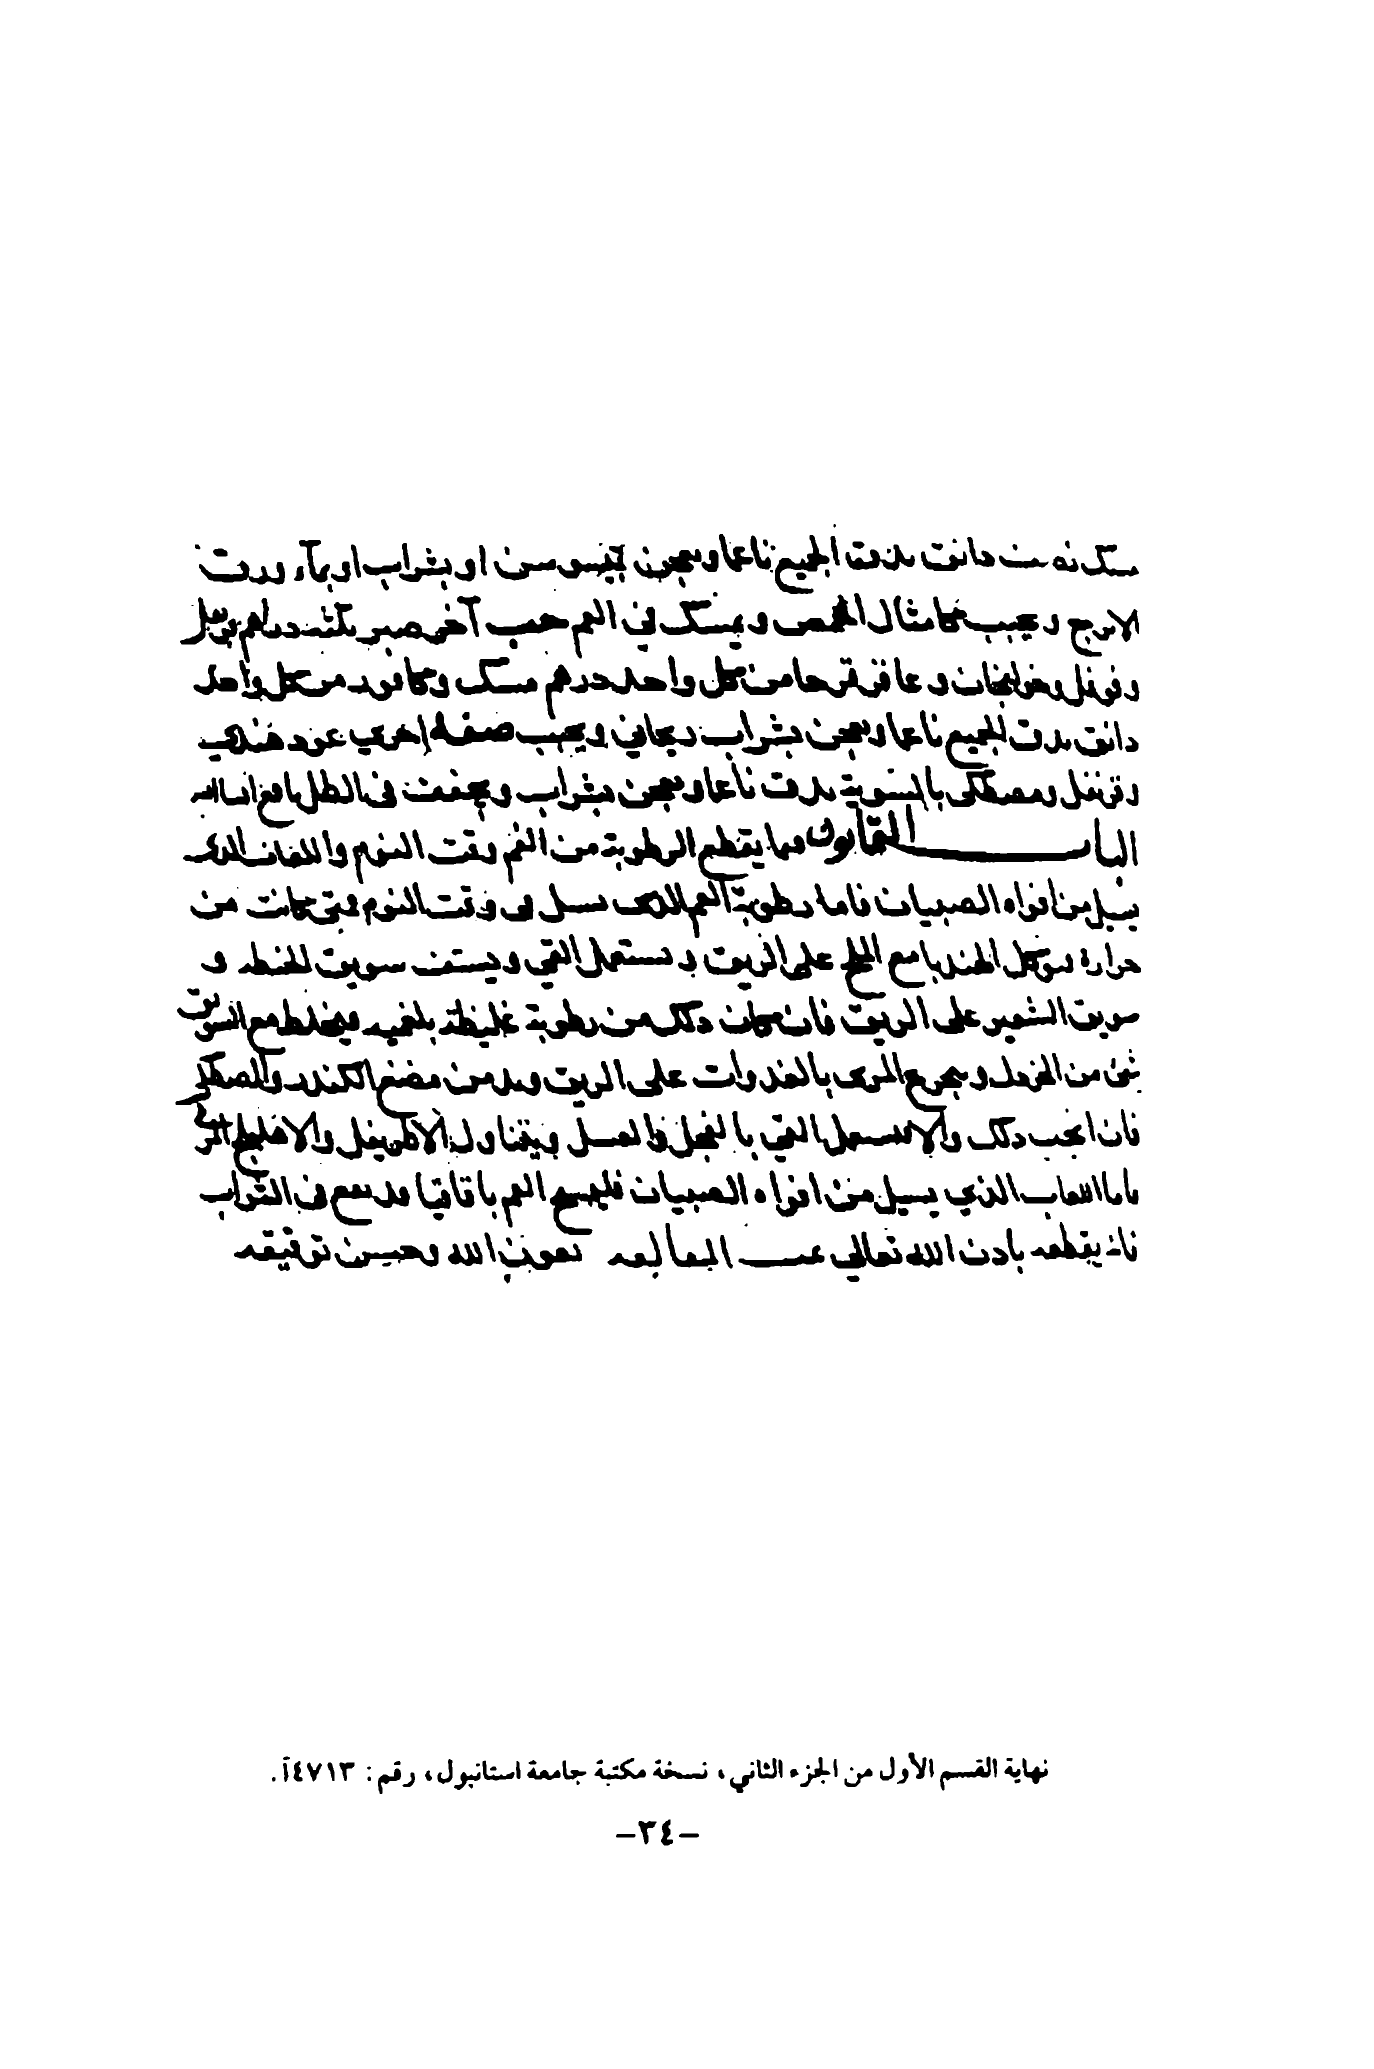 مسك نصف دانق يدق الجميع ناعما ويعجن بميسوسن او بشراب او بماء ورق
الاترج ويحبب كامثال الحمص ويمسك في الفم حب آخر صبر ثلثه دراهم قرنفل
وقرنفل وخولنجان وعاقرقرحا من كل واحد درهم مسك وكافور من كل واحد
دانق يدق الجميع ناعما ويعجن بشراب ريحاني ويحبب صفه اخرى عود هندي
وقرنفل ومصطكى بالسوية يدق ناعما ويعجن بشراب ويجفف في الظل نافع ان شاالله
الباب الثمانون فيما يقطع الرطوبة من الفم وقت النوم واللعاب الذي
يسيل من افواه الصبيان فاما رطوبة الفم الذي تسيل في وقت النوم فمتى كانت من
حرارة فيوكل الهندبا مع الملح على الريق ويستعمل القي ويستف سويق الحنطه و
سويق الشعير على الريق فان كان ذلك من رطوبة غليظة بلغميه فيخلط مع السويق
شئ من الخردل ويجرع المرى بالغدوات على الريق ويدمن مضغ الكندر والمصطكى
فان انجب ذلك والا فيستعمل القي بالفجل والعسل ويتناول الاطريفل والاهليلج المربى
فاما اللعاب الذي يسيل من افواه الصبيان فليمسح الفم باقاقيا قد نقع في الشراب
فانه يقطعه باذن الله تعالي تمت المقالة بعون الله وحسن توفيقه
نهاية القسم الأول من الجزء الثاني، نسخة مكتبة جامعة استانبول، رقم: ٤٧١٣آ.
-٣٤-